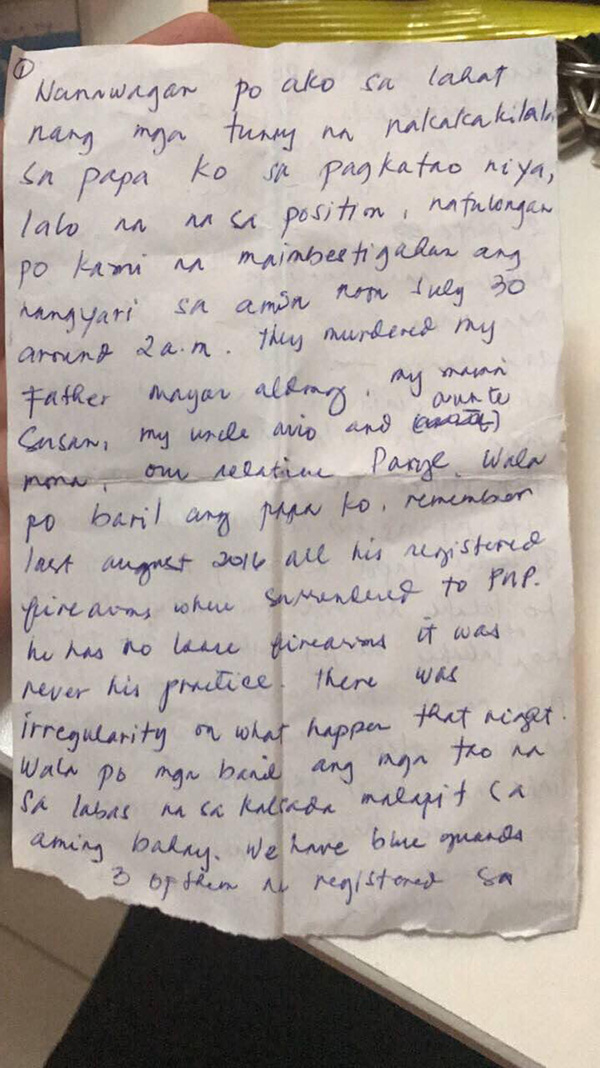 ①
Nanawagan po ako sa lahat
nang mga tunay na nakakakilala
sa papa ko sa pagkatao niya,
lalo na na sa position, natulongan
po kami na maimbestigahan ang
nangyari sa amin noon July 30
around 2 a.m. They murdered my
Father mayor, my mama
Susan, my uncle and aunte
mona, our relative. Wala
po baril ang papa ko, remember
last august 2016 all his registered
firearms where surrendered to PNP.
he has no loose firearms it was
never his practice. There was
irregularity on what happen that night.
Wala po mga baril ang mga tao na
sa labas na sa kalsada malapit sa
aming bahay. We have blue guards
3 of them na registered sa